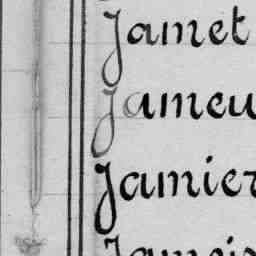 Jamet
Jameu
Jamier